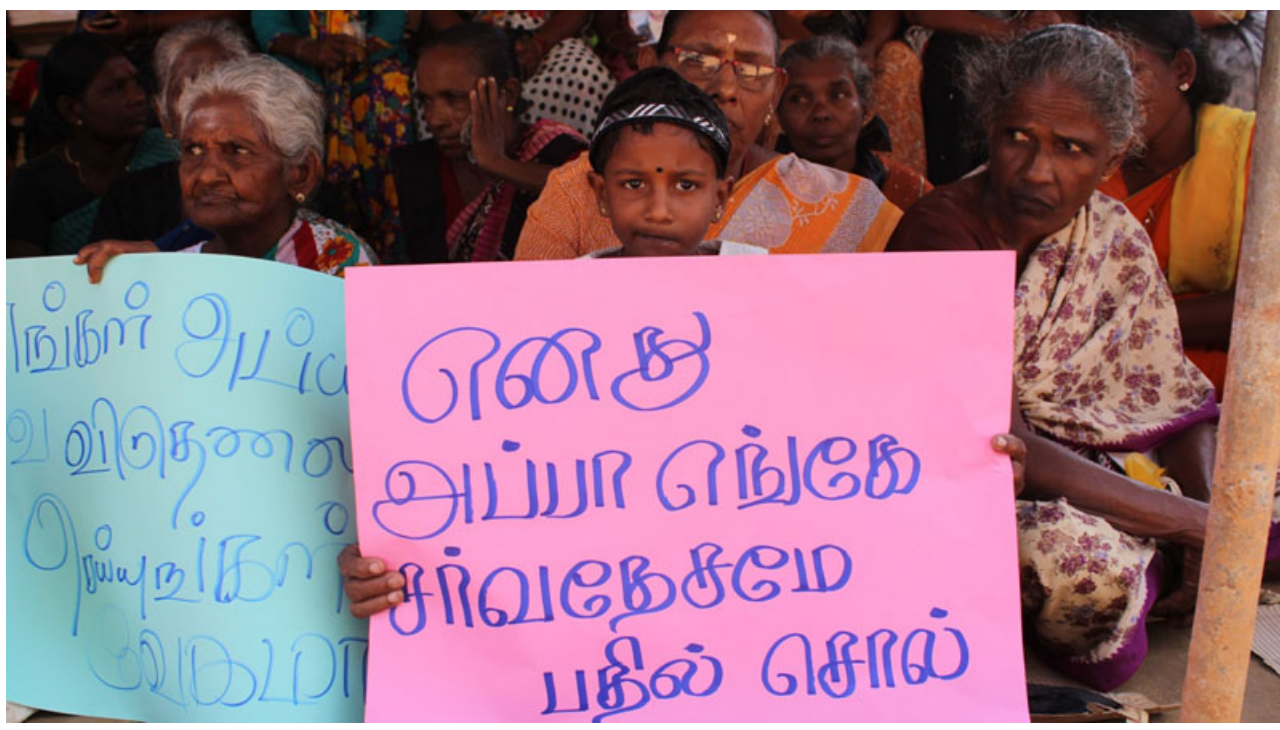 எங்கள்
விடுதலை
செய்யுங்கள்
எனது
அப்பா எங்கே
சர்வதேசமே
பதில் சொல்